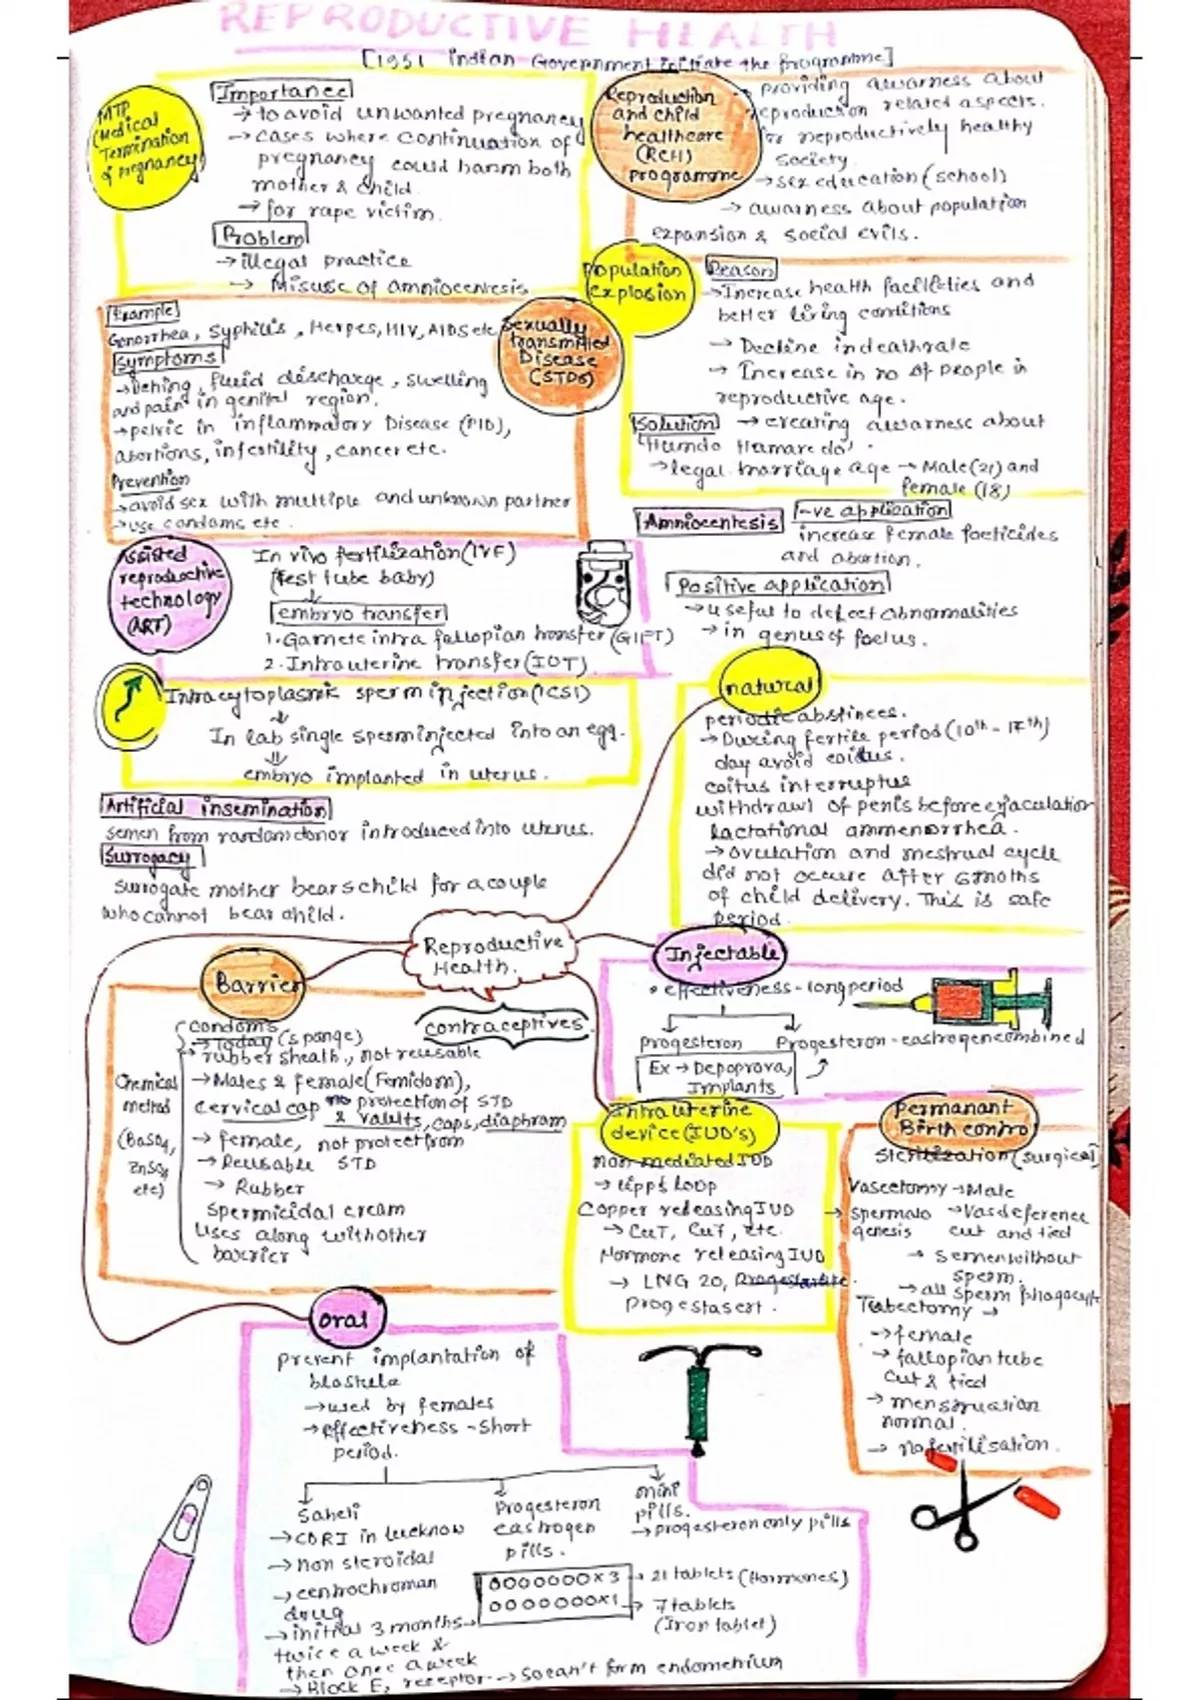 REPRODUCTIVE HEALTH
[1951 Indian Government initiate the programme]
MTP
(Medical
Termination
of pregnancy)
Importance
→ to avoid unwanted pregnancy
→ cases where continuation of
pregnancy could harm both
mother & child.
→ for rape victim.
Problem
→ illegal practice
→ Misuse of amniocentesis
Reproduction
and child
healthcare
(RCH)
programme
→ providing awarness about
reproduction related aspects.
for reproductively healthy
society.
→ sex education (school)
→ awarness about population
expansion & social evils.
Population
explosion
Reason
→ Increase health facilities and
better living conditions
→ Decline in deathrate
→ Increase in no of people in
reproductive age.
Solution → creating awarness about
'Humdo Hamare do'.
→ legal marriage age → Male (21) and
female (18)
Example
Gonorrhea, Syphilis, Herpes, HIV, AIDS etc
Symptoms
fluid discharge, swelling
and pain in genital region.
→ pelvic in inflammatory Disease (PID),
abortions, infertility, cancer etc.
Prevention
→ avoid sex with multiple and unknown partner
→ use condoms etc.
Sexually
transmitted
Disease
(STDs)
Amniocentesis
-ve application
increase female foeticides
and abortion.
Positive application
→ useful to detect abnormalities
→ in genus of foetus.
Assisted
reproductive
technology
(ART)
In vivo fertilization (IVF)
(Test tube baby)
↓
embryo transfer
1. Gamete intra fallopian transfer (GIFT)
2. Intra uterine transfer (IUT)
Intracytoplasmic sperm injection (ICSI)
↓
In lab single sperm injected into an egg.
⇓
embryo implanted in uterus.
Artificial insemination
semen from random donor introduced into uterus.
Surrogacy
surrogate mother bears child for a couple
who cannot bear child.
natural
periodic abstinees.
→ During fertile period (10th - 17th)
day avoid coitus.
coitus interruptus
withdrawl of penis before ejaculation
lactational ammenorrhea.
→ ovulation and mestrual cycle
did not occure after 6 moths
of child delivery. This is safe
period.
Reproductive
Health.
contraceptives
Barrier
condoms
→ Today (sponge)
→ rubber sheath, not reusable
→ Males & female (Femidom),
cervical cap no protection of STD
& vaults, caps, diaphram
→ female, not protect from
→ Reusable STD
→ Rubber
spermicidal cream
Uses along with other
barrier
Chemical
method
(BaSO4,
ZnSO4
etc)
Injectable
• effectiveness - long period
progesteron
Progesteron - eastrogen combined
Ex → Depoprova,
Implants
Intra uterine
device (IUD's)
non mediated IUD
→ lippes loop
Copper releasing IUD
→ CuT, Cu7, etc.
Hormone releasing IUD
→ LNG 20,
progestasert.
Permanant
Birth control
Sterilization (surgical)
Vasectomy → Male
→ spermato
genesis
→ Vas deference
cut and tied
→ semen without
sperm.
→ all sperm phagocyte
Tubectomy →
→ female
→ fallopian tube
cut & tied
→ menstruation
normal.
→ no fertilisation.
Oral
prevent implantation of
blastula
→ used by females
→ effectiveness - short
period.
Saheli
→ CDRI in lucknow
→ non steroidal
→ centrochroman
drug
→ initial 3 months →
twice a week &
then once a week
→ Block E2 receptor → so can't form endometrium
Progesteron
eastrogen
pills.
mini
pills.
→ progesteron only pills
OOOOOOO x 3 → 21 tablets (Hormones)
OOOOOOO x 1 → 7 tablets
(Iron tablet)